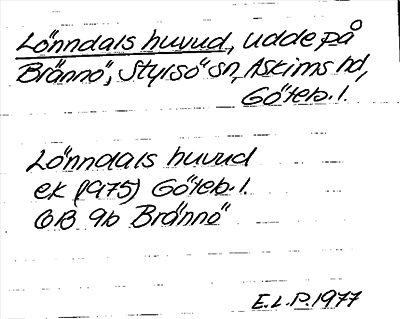 Lönndals huvud, udde på
Brännö, Styrsö sn, Askims hd,
Göteb. l.
Lönndals huvud
ek (1975) Göteb. l.
6B 9b Brännö
E.L.P. 1977